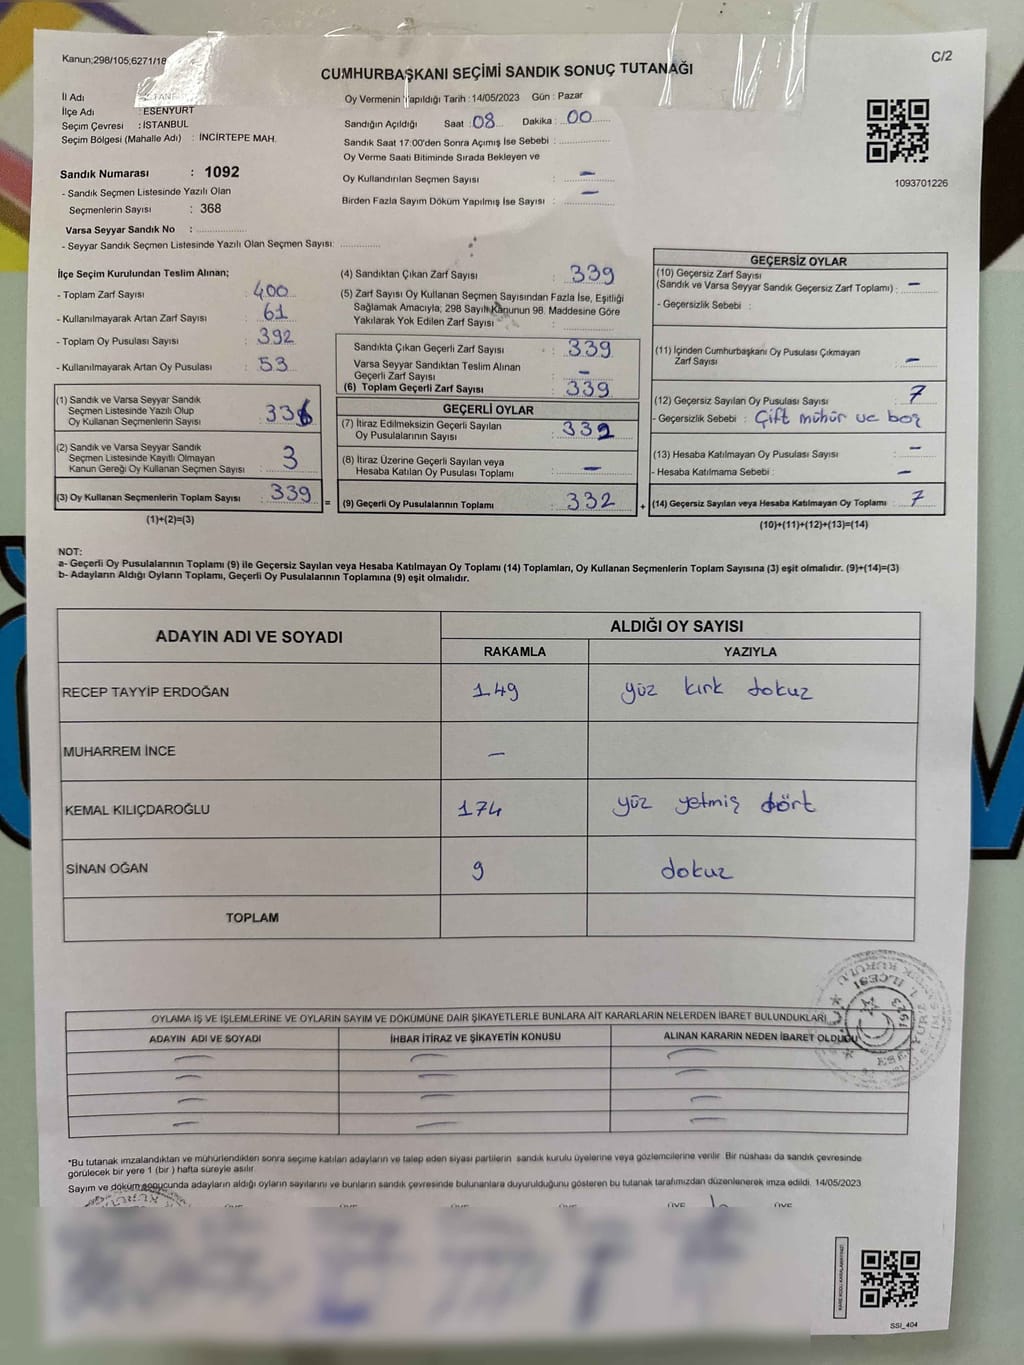 Kanun;298/105;6271/18
C/2
CUMHURBAŞKANI SEÇİMİ SANDIK SONUÇ TUTANAĞI
İl Adı
İlçe Adı : ESENYURT
Seçim Çevresi : İSTANBUL
Seçim Bölgesi (Mahalle Adı) : İNCİRTEPE MAH.
Sandık Numarası : 1092
- Sandık Seçmen Listesinde Yazılı Olan
Seçmenlerin Sayısı : 368
Varsa Seyyar Sandık No : ..............
- Seyyar Sandık Seçmen Listesinde Yazılı Olan Seçmen Sayısı: ............
Oy Vermenin Yapıldığı Tarih : 14/05/2023 Gün : Pazar
Sandığın Açıldığı Saat : 08 Dakika : 00
Sandık Saat 17:00'den Sonra Açımış İse Sebebi : ..............
Oy Verme Saati Bitiminde Sırada Bekleyen ve
Oy Kullandırılan Seçmen Sayısı : —
Birden Fazla Sayım Döküm Yapılmış İse Sayısı : —
1093701226
İlçe Seçim Kurulundan Teslim Alınan;
- Toplam Zarf Sayısı : 400
- Kullanılmayarak Artan Zarf Sayısı : 61
- Toplam Oy Pusulası Sayısı : 392
- Kullanılmayarak Artan Oy Pusulası : 53
(1) Sandık ve Varsa Seyyar Sandık
Seçmen Listesinde Yazılı Olup
Oy Kullanan Seçmenlerin Sayısı : 336
(2) Sandık ve Varsa Seyyar Sandık
Seçmen Listesinde Kayıtlı Olmayan
Kanun Gereği Oy Kullanan Seçmen Sayısı : 3
(3) Oy Kullanan Seçmenlerin Toplam Sayısı : 339
(1)+(2)=(3)
=
(4) Sandıktan Çıkan Zarf Sayısı : 339
(5) Zarf Sayısı Oy Kullanan Seçmen Sayısından Fazla İse, Eşitliği
Sağlamak Amacıyla; 298 Sayılı Kanunun 98. Maddesine Göre
Yakılarak Yok Edilen Zarf Sayısı :
Sandıkta Çıkan Geçerli Zarf Sayısı : 339
Varsa Seyyar Sandıktan Teslim Alınan
Geçerli Zarf Sayısı : —
(6) Toplam Geçerli Zarf Sayısı : 339
GEÇERLİ OYLAR
(7) İtiraz Edilmeksizin Geçerli Sayılan
Oy Pusulalarının Sayısı : 332
(8) İtiraz Üzerine Geçerli Sayılan veya
Hesaba Katılan Oy Pusulası Toplamı : —
(9) Geçerli Oy Pusulalarının Toplamı : 332
+
GEÇERSİZ OYLAR
(10) Geçersiz Zarf Sayısı
(Sandık ve Varsa Seyyar Sandık Geçersiz Zarf Toplamı) : —
- Geçersizlik Sebebi :
(11) İçinden Cumhurbaşkanı Oy Pusulası Çıkmayan
Zarf Sayısı : —
(12) Geçersiz Sayılan Oy Pusulası Sayısı : 7
- Geçersizlik Sebebi : Çift mühür ve boş
(13) Hesaba Katılmayan Oy Pusulası Sayısı : —
- Hesaba Katılmama Sebebi : —
(14) Geçersiz Sayılan veya Hesaba Katılmayan Oy Toplamı : 7
(10)+(11)+(12)+(13)=(14)
NOT:
a- Geçerli Oy Pusulalarının Toplamı (9) ile Geçersiz Sayılan veya Hesaba Katılmayan Oy Toplamı (14) Toplamları, Oy Kullanan Seçmenlerin Toplam Sayısına (3) eşit olmalıdır. (9)+(14)=(3)
b- Adayların Aldığı Oyların Toplamı, Geçerli Oy Pusulalarının Toplamına (9) eşit olmalıdır.
ADAYIN ADI VE SOYADI
ALDIĞI OY SAYISI
RAKAMLA YAZIYLA
RECEP TAYYİP ERDOĞAN 149 yüz kırk dokuz
MUHARREM İNCE —
KEMAL KILIÇDAROĞLU 174 yüz yetmiş dört
SİNAN OĞAN 9 dokuz
TOPLAM
OYLAMA İŞ VE İŞLEMLERİNE VE OYLARIN SAYIM VE DÖKÜMÜNE DAİR ŞİKAYETLERLE BUNLARA AİT KARARLARIN NELERDEN İBARET BULUNDUKLARI
ADAYIN ADI VE SOYADI İHBAR İTİRAZ VE ŞİKAYETİN KONUSU ALINAN KARARIN NEDEN İBARET OLDUĞU
— — —
— — —
— — —
— — —
*Bu tutanak imzalandıktan ve mühürlendikten sonra seçime katılan adayların ve talep eden siyasi partilerin sandık kurulu üyelerine veya gözlemcilerine verilir. Bir nüshası da sandık çevresinde
görülecek bir yere 1 (bir ) hafta süreyle asılır.
Sayım ve döküm sonucunda adayların aldığı oyların sayılarını ve bunların sandık çevresinde bulunanlara duyurulduğunu gösteren bu tutanak tarafımızdan düzenlenerek imza edildi. 14/05/2023
SSI_404